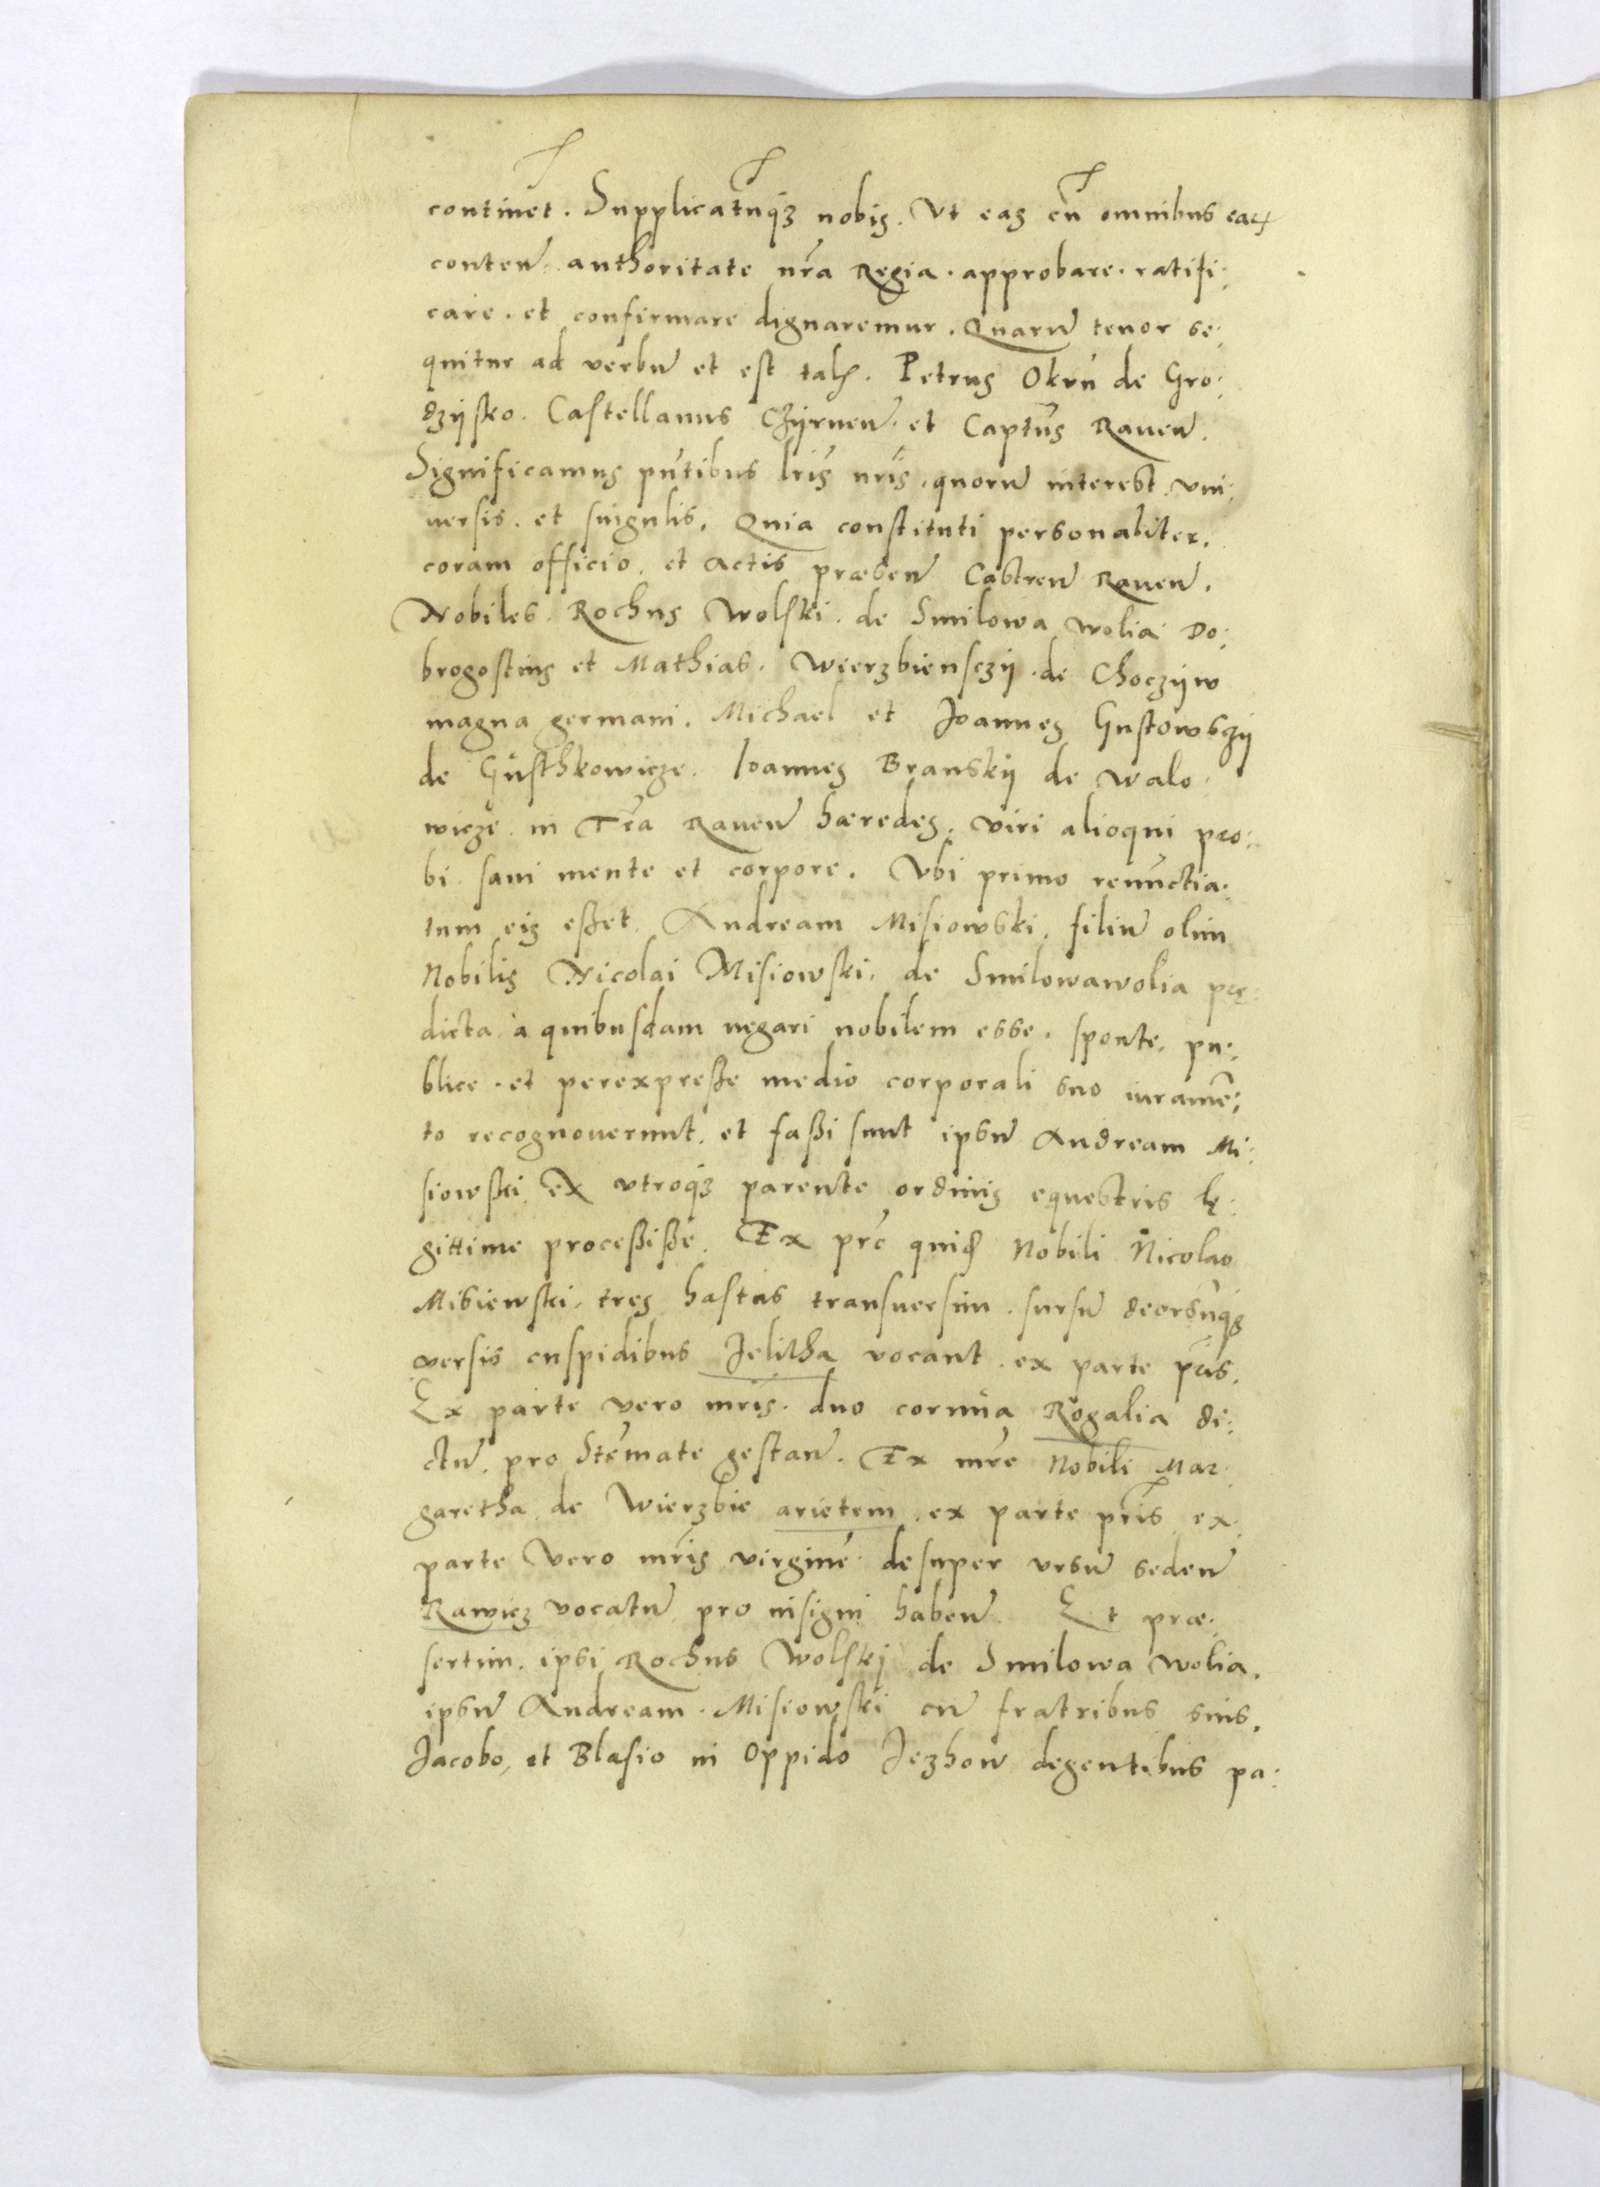 continet. Supplicatūqȝ nobis. Vt eas cū omnibus earꝝ
conten̄ authoritate nr̄a Regia. approbare. ratifi:
care. et confirmare dignaremur. Quarū tenor se:
quitur ad verbū et est talꝭ. Petrus Okun de Gro:
dzijsko. Castellanus Czyrnen̄. et Captūs Rauen̄.
Significamus pn̄tibus lrīs nrīs. quorū interest. vni:
uersis. et singulis. Quia constituti personaliter.
coram officio. et actis præsen̄ Castren̄ Rauen̄.
Nobiles. Rochus Wolski. de Smilowa wolia Do:
brogostius et Mathias. Wierzbienſczij de Choczijw
magna germani. Michael et Joannes Gustowsczij
de Gusthkowicze. Ioannes Branskij de walo:
wicze in Tr̄a Rauen̄ hæredes. viri alioqui pro:
bi sani mente et corpore. Vbi primo renūctia:
tum eis eßet. Andream Misiowski. filiū olim
Nobilis Nicolai Misiowski. de Smilowawolia præ:
dicta à quibusdam negari nobilem esse. sponte. pu:
blice. et perexpreße medio corporali suo iuramē:
to recognouerunt. et faßi sunt ipsū Andream Mi:
siowski ex vtroqȝ parente ordinis equestris lę:
gittime proceßiße. Ex pr̄e quiḋ Nobili Nicolao
Misiewski. tres hastas transuersim. sursū deorsūqȝ
versis cuspidibus Jelitha vocant. ex parte pr̄is.
Ex parte vero mr̄is. duo cornua Rogalia di:
ctū. pro Stēmate gestan̄. Ex mr̄e Nobili Mar:
garetha de Wierzbie arietem. ex parte pr̄is ex
parte Vero mr̄is virginē desuper vrsū seden̄
Rawicz vocatū pro insigni haben̄ Et præ:
sertim. ipsi Rochus Wolskj de Smilowa wolia.
ipsū Andream. Misiowski cū fratribus suis.
Jacobo, et Blasio in Oppido Jezhow degentibus pa: